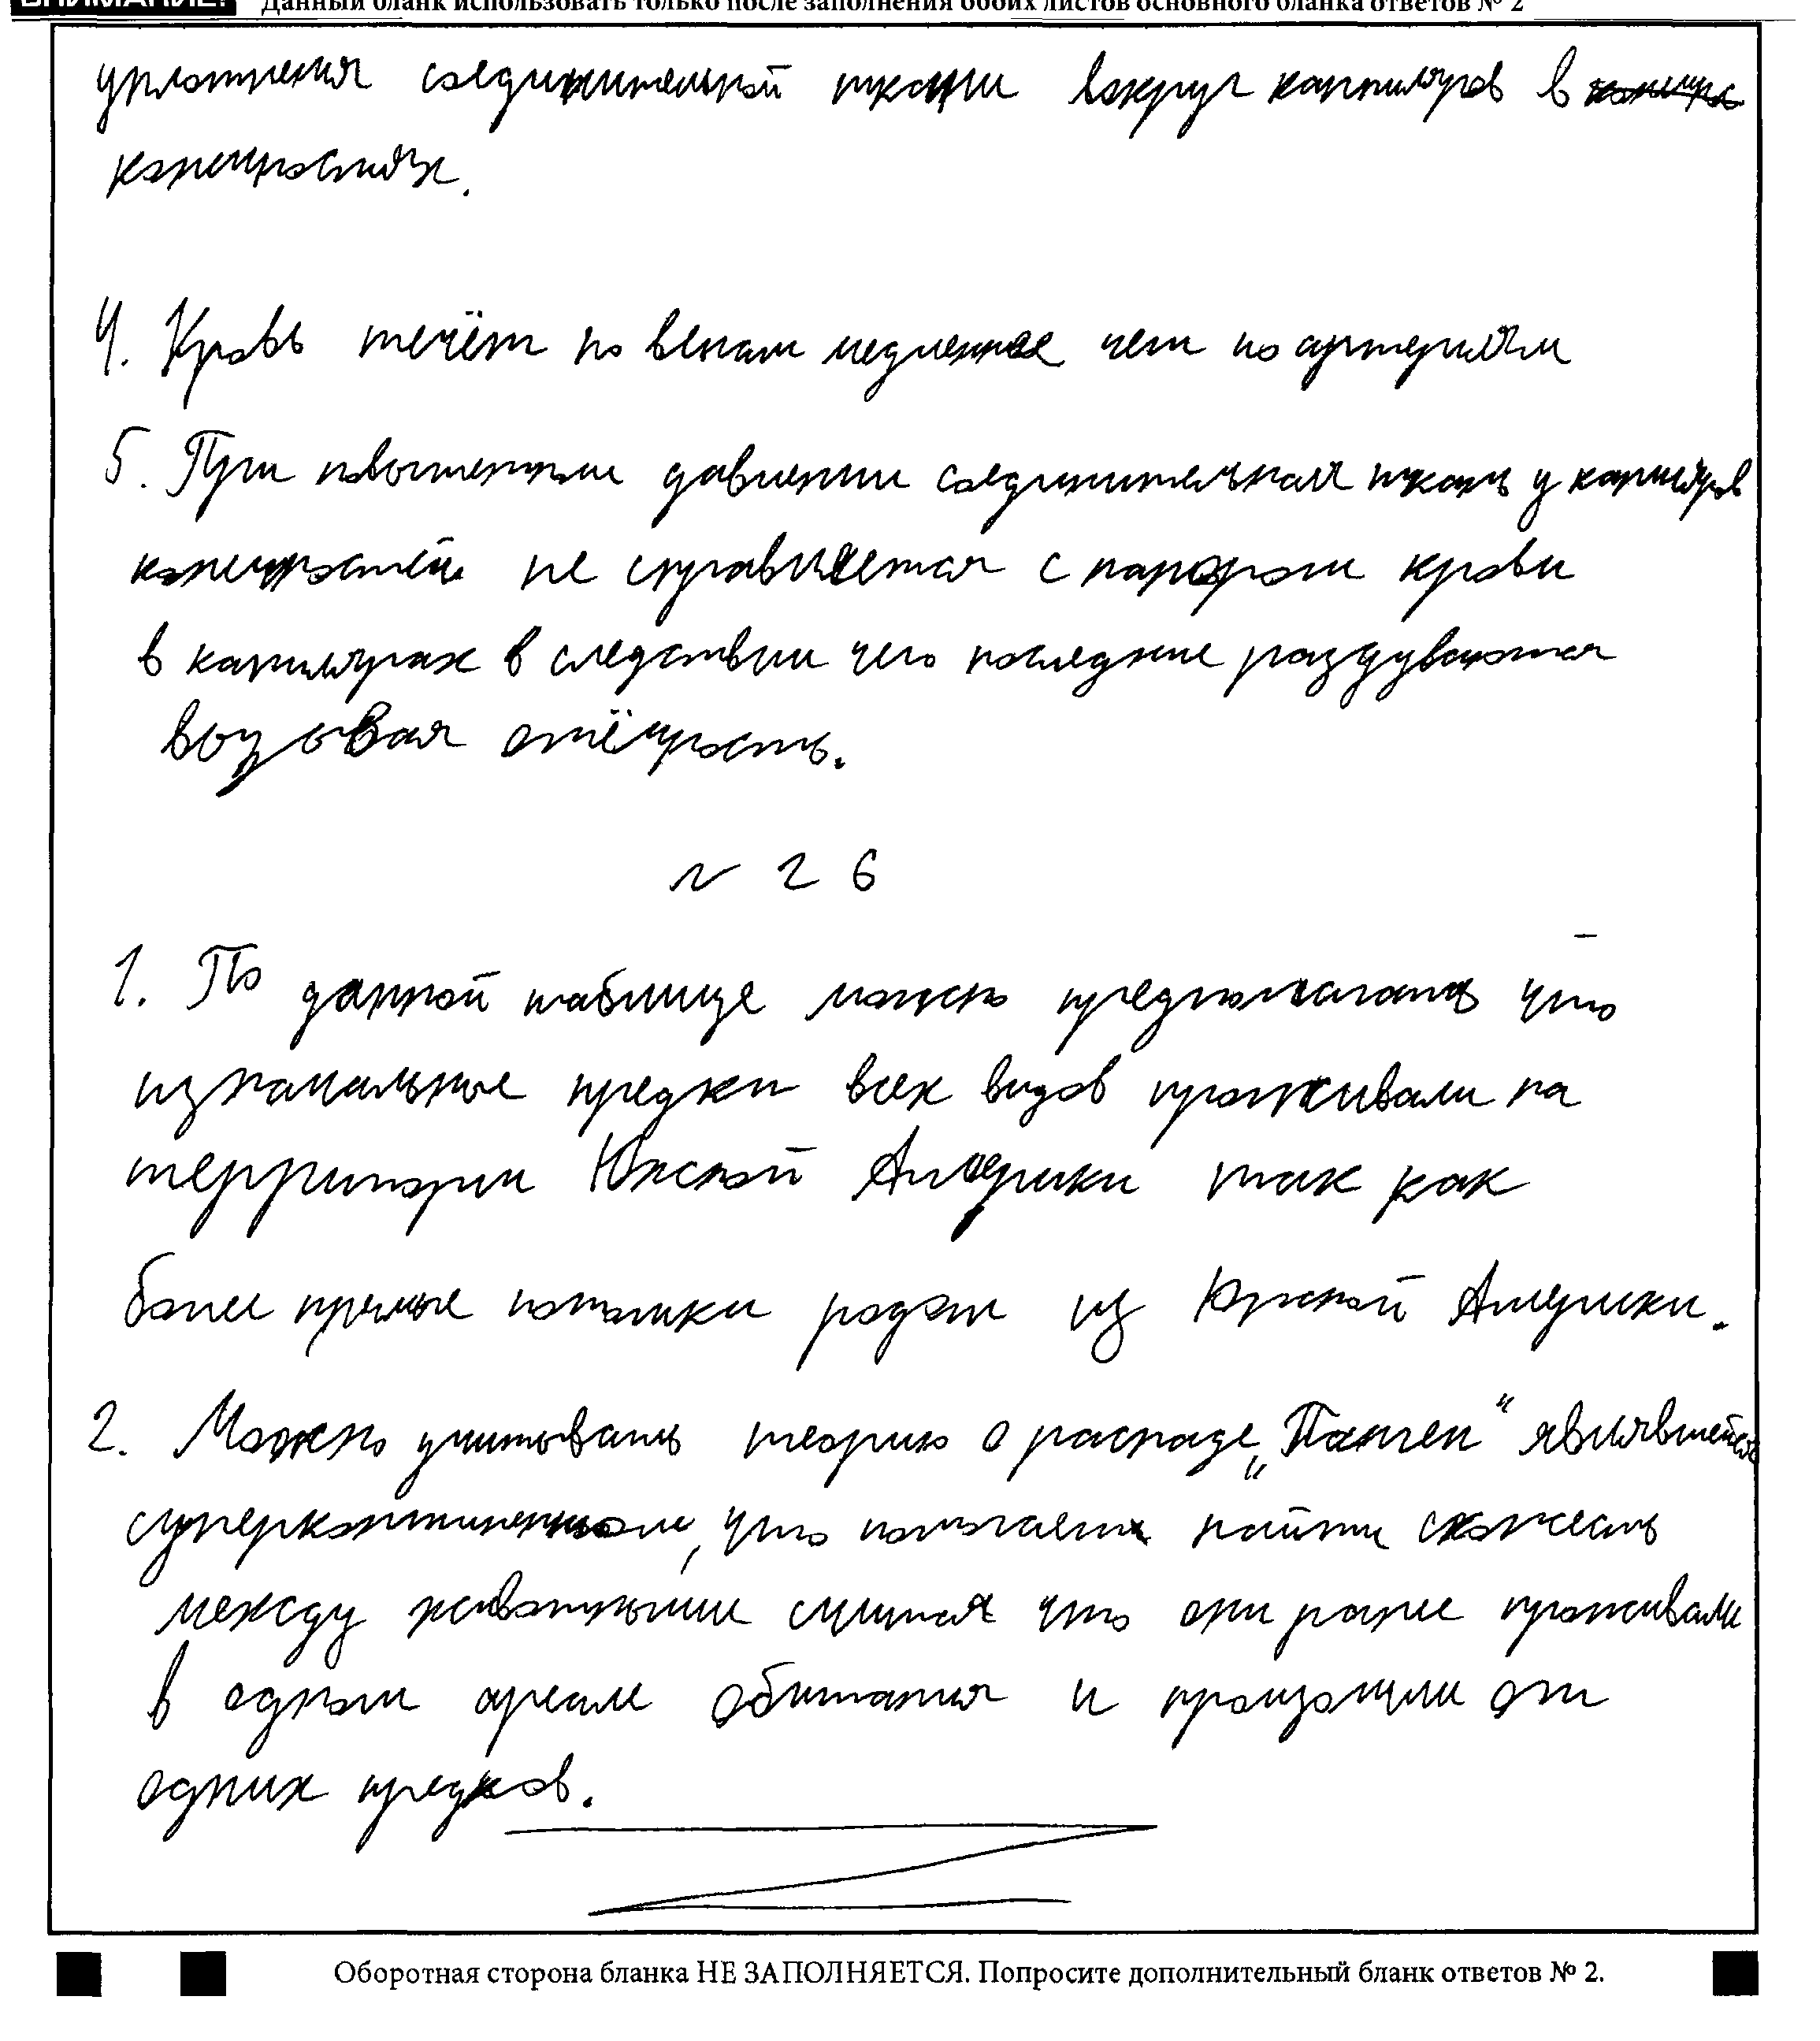 ВНИМАНИЕ! Данный бланк использовать только после заполнения обоих листов основного бланка ответов № 2
уплотнения соединительной ткани вокруг капиляров в
конечностях.
4. Кровь течёт по венам медленнее чем по артериям
5. При повышенном давлении соединительная ткань у капиляров
конечностей не справляется с напором крови
в капилярах в следствии чего последние раздуваются
вызывая отёчность.
№ 26
1. По данной таблице можно предполагать что
изначальные предки всех видов проживали на
территории Южной Америки так как
более прямые потомки родом из Южной Америки.
2. Можно учитывать теорию о распаде „Пангеи“ являвшейся
суперконтинентом, что помогает найти схожесть
между животными считая что они ранее проживали
в одном ареале обитания и произошли от
одних предков.
Оборотная сторона бланка НЕ ЗАПОЛНЯЕТСЯ. Попросите дополнительный бланк ответов № 2.